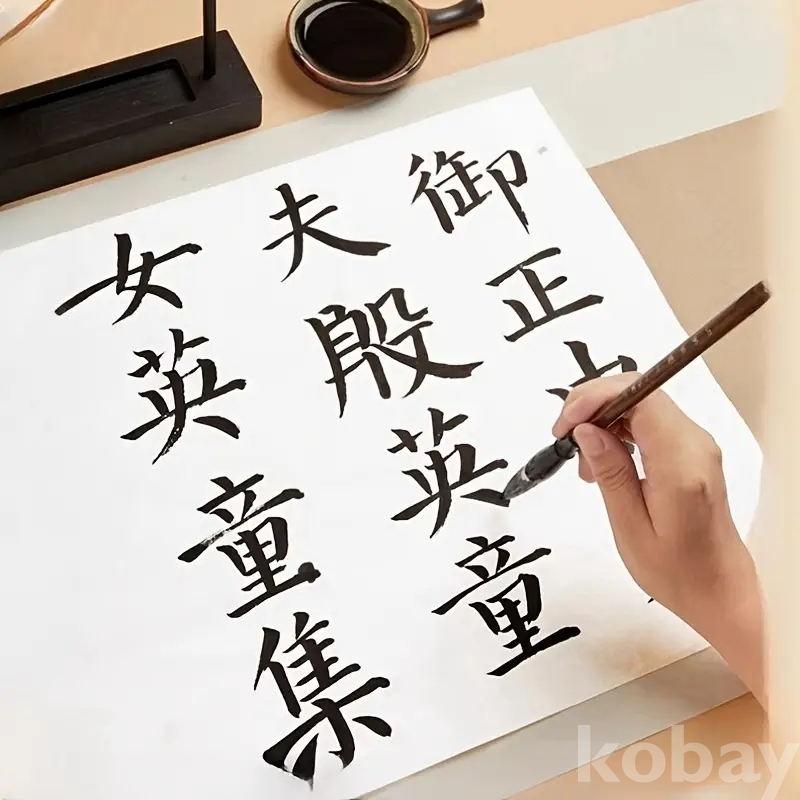 御正
夫殷英童
女英童集
kobay